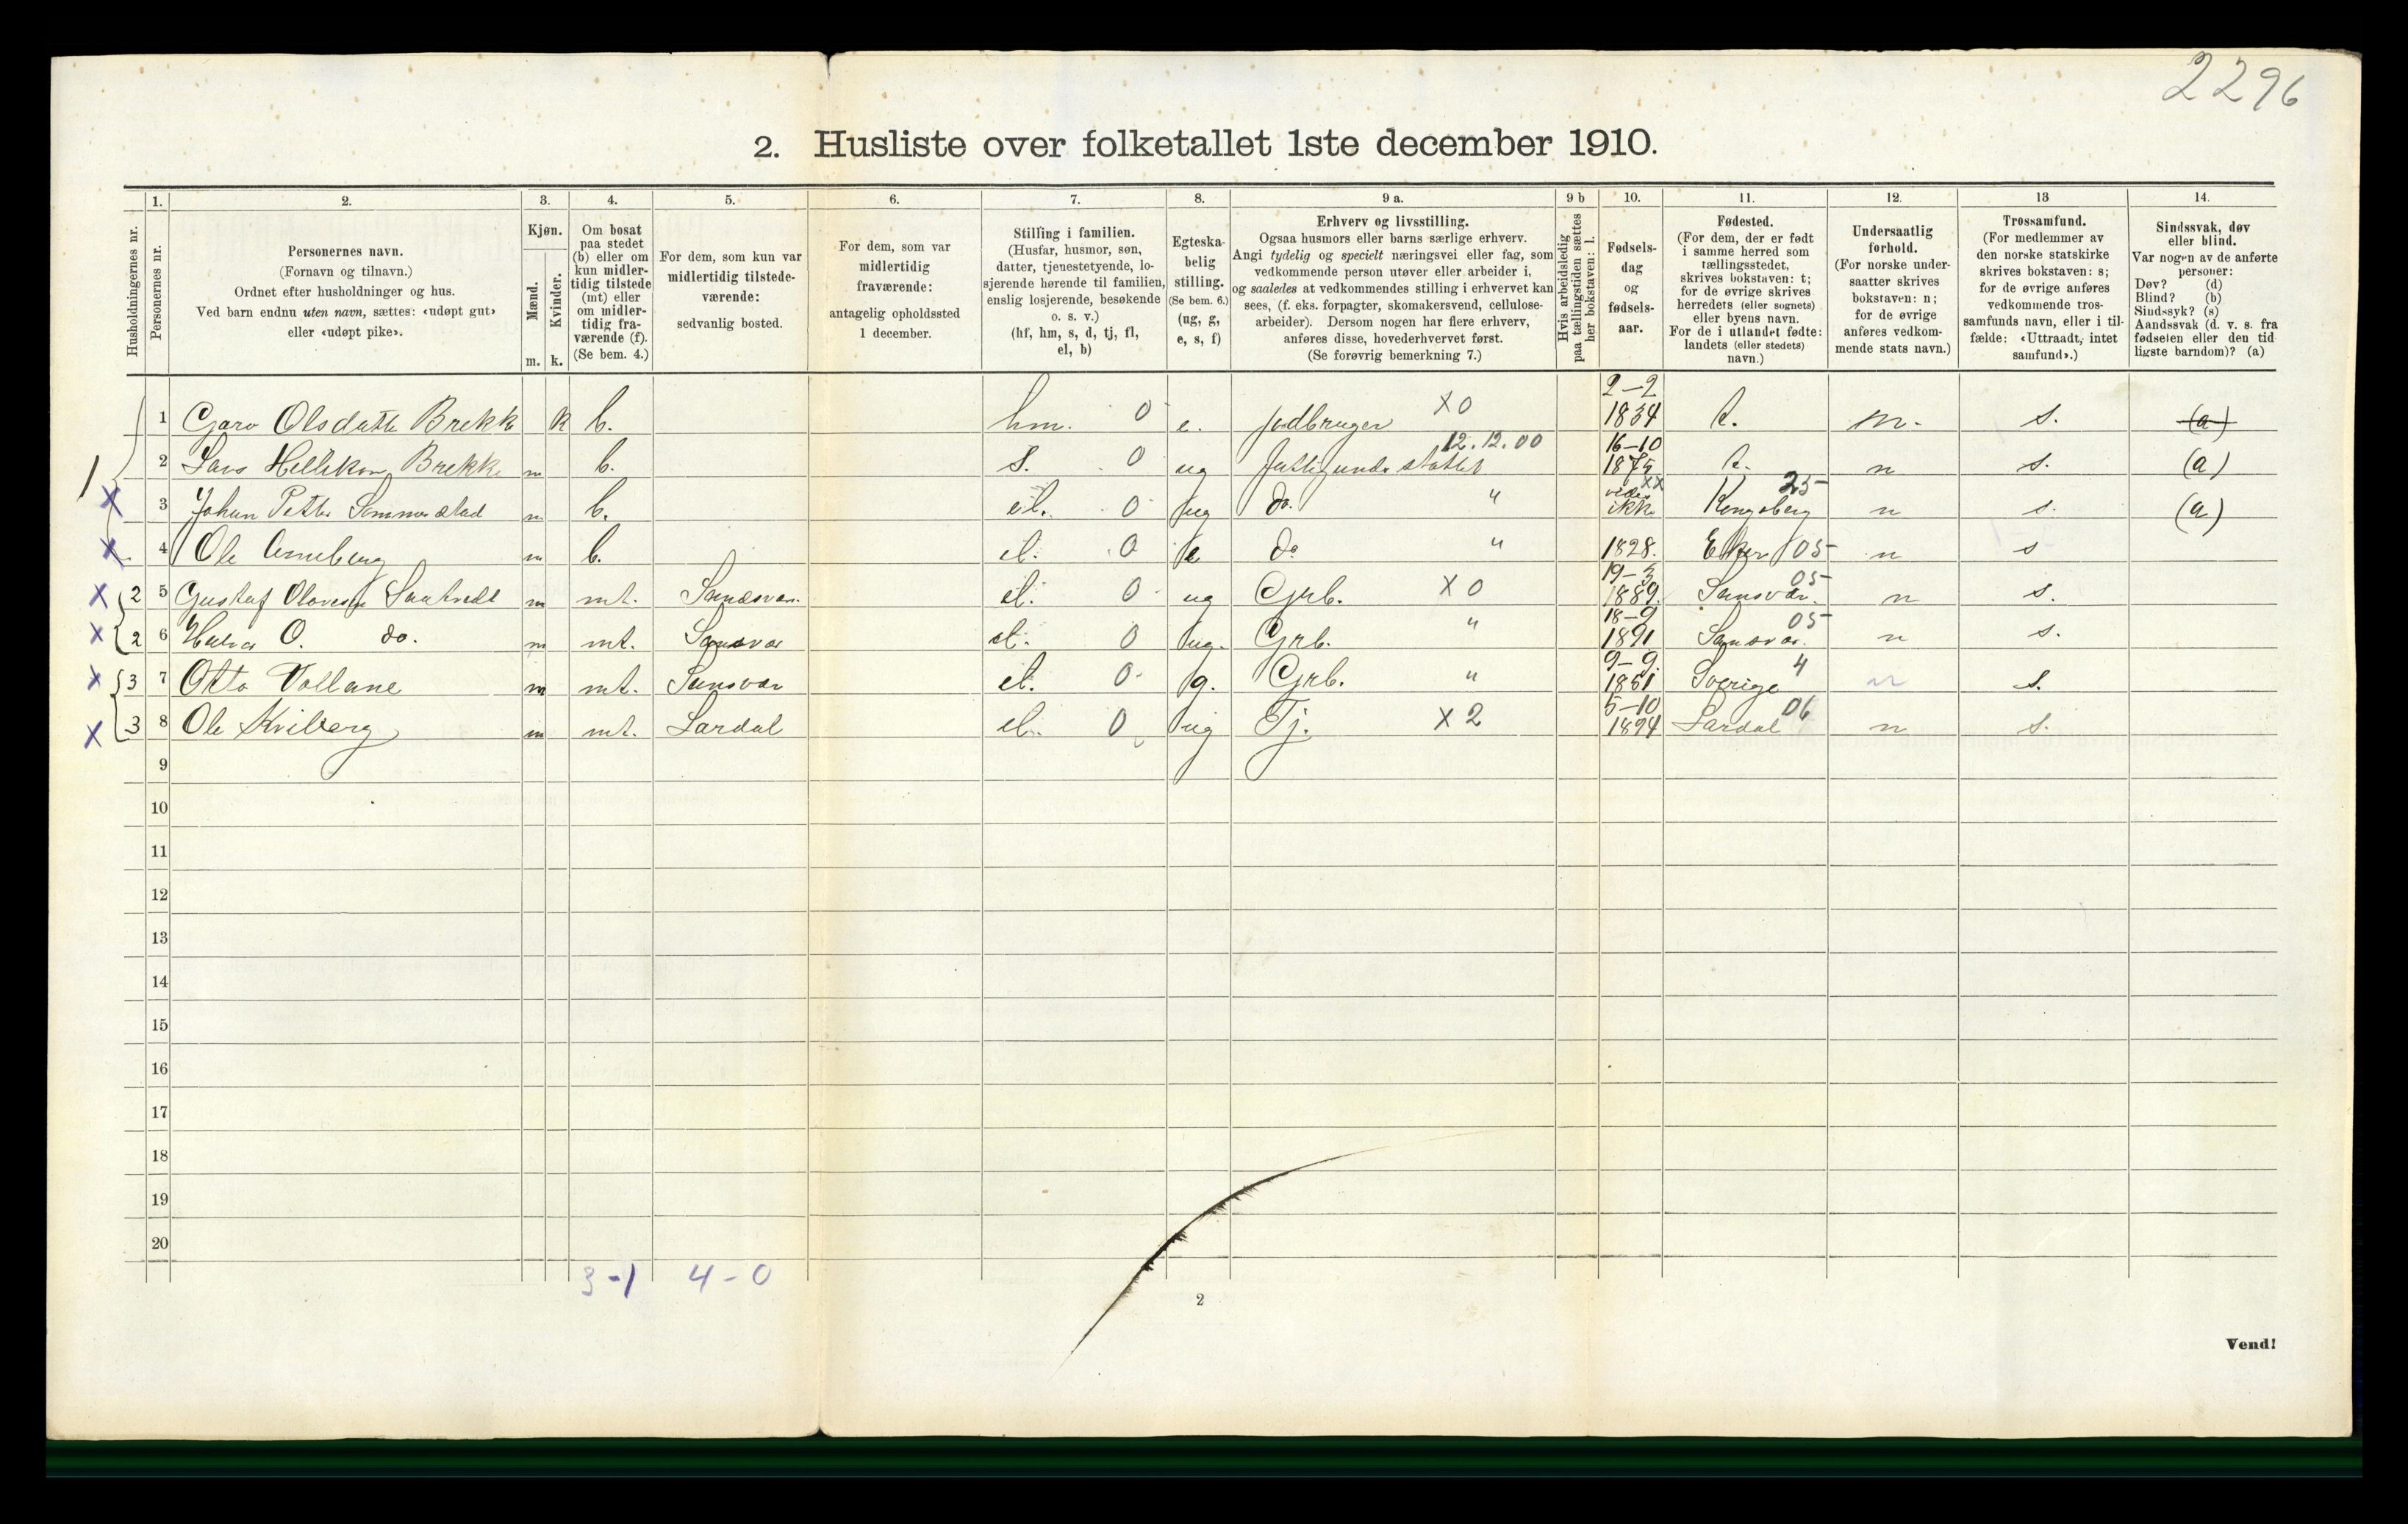 2296
2. Husliste over folketallet 1ste december 1910.
1. 2. 3. 4. 5. 6. 7. 8. 9 a. 9 b 10. 11. 12. 13 14.
Husholdningernes nr.
Personernes nr.
Personernes navn.
(Fornavn og tilnavn.)
Ordnet efter husholdninger og hus.
Ved barn endnu uten navn, sættes: «udøpt gut»
eller «udøpt pike».
Kjøn.
Mænd.
Kvinder.
m. k.
Om bosat
paa stedet
(b) eller om
kun midler-
tidig tilstede
(mt) eller
om midler-
tidig fra-
værende (f).
(Se bem. 4.)
For dem, som kun var
midlertidig tilstede-
værende:
sedvanlig bosted.
For dem, som var
midlertidig
fraværende:
antagelig opholdssted
1 december.
Stilling i familien.
(Husfar, husmor, søn,
datter, tjenestetyende, lo-
sjerende hørende til familien,
enslig losjerende, besøkende
o. s. v.)
(hf, hm, s, d, tj, fl,
el, b)
Egteska-
belig
stilling.
(Se bem. 6.)
(ug, g,
e, s, f)
Erhverv og livsstilling.
Ogsaa husmors eller barns særlige erhverv.
Angi tydelig og specielt næringsvei eller fag, som
vedkommende person utøver eller arbeider i,
og saaledes at vedkommendes stilling i erhvervet kan
sees, (f. eks. forpagter, skomakersvend, cellulose-
arbeider). Dersom nogen har flere erhverv,
anføres disse, hovederhvervet først.
(Se forøvrig bemerkning 7.)
Hvis arbeidsledig
paa tællingstiden sættes
her bokstaven: l.
Fødsels-
dag
og
fødsels-
aar.
Fødested.
(For dem, der er født
i samme herred som
tællingsstedet,
skrives bokstaven: t;
for de øvrige skrives
herredets (eller sognets)
eller byens navn.
For de i utlandet fødte:
landets (eller stedets)
navn.)
Undersaatlig
forhold.
(For norske under-
saatter skrives
bokstaven: n;
for de øvrige
anføres vedkom-
mende stats navn.)
Trossamfund.
(For medlemmer av
den norske statskirke
skrives bokstaven: s;
for de øvrige anføres
vedkommende tros-
samfunds navn, eller i til-
fælde: «Uttraadt, intet
samfund».)
Sindssvak, døv
eller blind.
Var nogen av de anførte
personer:
Døv? (d)
Blind? (b)
Sindssyk? (s)
Aandssvak (d. v. s. fra
fødselen eller den tid
ligste barndom)? (a)
1 Olsdatte Brekk k b. hm. 0 e. jodbruger X0 2-2 1834 t. n. s. (a)
1 2 Lars Brekk m b. s. 0 ug 12.12.00 16-10 t. n s. (a)
X 3 Johan Petter m b. el. 0 ug do. " vides ikke xx Kongsberg 25 n s. (a)
X 4 Ole m b. el. 0 e do " 1828. Eker 05 n s
X 2 5 Gustaf m mt. Sandsvær el. 0 ug Grb. X0 19-3 1889. Sansvær 05 n s.
X 2 6 O. do. m mt. Sansvær el. 0 ug. Grb. " 18-9 1891 Sansvær 05 n s.
X 3 7 Otto Vollane m mt. Sansvær el. 0 g. Grb. " 9-9. 1861 Sverige 4 s.
X 3 8 Ole Kviberg m mt. Lardal el. 0 ug Tj. X2 5-10 1894 Lardal 06 n s.
9
10
11
12
13
14
15
16
17
18
19
20
3-1 4-0
2
Vend!